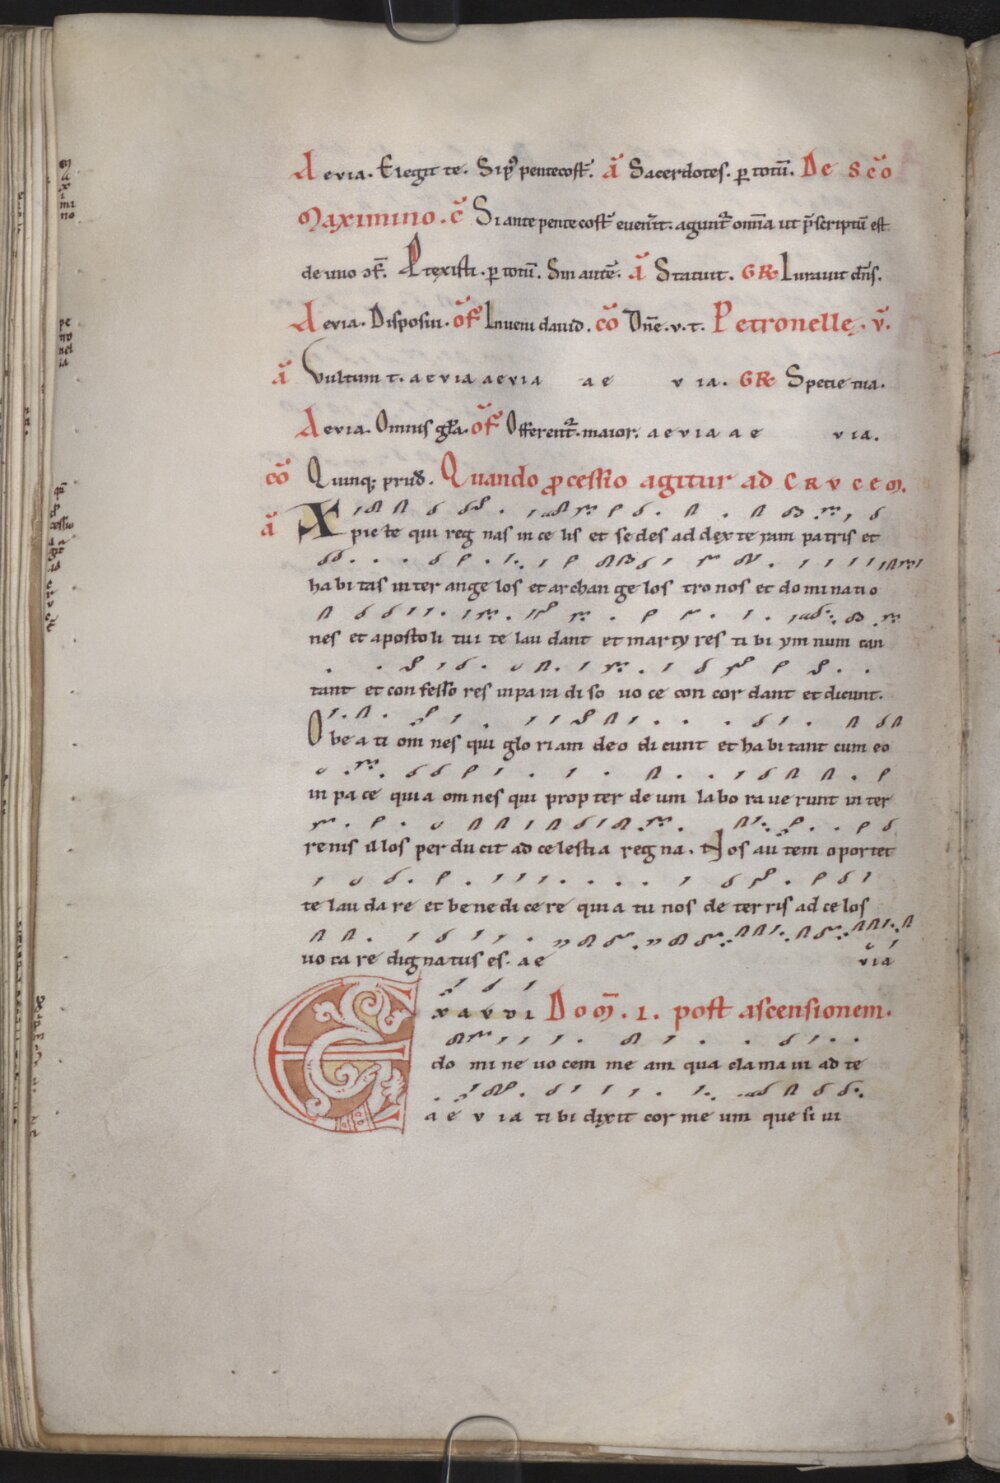 Aevia. Elegit te. Si p⁹ pentecost̄. ā Sacerdotes. p̱ totū. De s c̄o
Maximino. c̄ Si ante pentecost̄ evener̄t. agunt᷑ om̄ia ut p̄scriptū est
de uno ɔf̄. Ptexisti. p̱ totū. Sin autē. ā Statuit. GR Iuravit dn̄s.
Aevia. Disposui. of̄ Inveni david. c̄o Dn̄e. v. t. Petronelle. v̄.
ā Vultum t. aevia aevia ae v ia. GR Specie tua.
Aevia. Omnis gl̄a. of̄ Offerent᷑. maior. aevia ae via.
c̄o Quinq; prud̄. Quando p̱cessio agitur ad CRUCEM.
ā Xpiete qui reg nas in ce lis et se des ad dex te ram patris et
ha bi tas inter ange los et archan ge los tro nos et do mi natio
nes et aposto li tui te lau dant et marty res ti bi ym num can
tant et con fesso res in pa ra di so vo ce con cor dant et dicunt.
O be a ti om nes qui glo riam deo di cunt et ha bi tant cum eo
in pa ce qui a om nes qui prop ter de um la bo ra ve runt in ter
re nis il los per du cit ad ce lestia reg na. Nos au tem oportet
te lau da re et be ne di ce re qui a tu nos de ter ris ad ce los
vo ca re dig na tus es. ae via
E xavdi Dom̄. I. post ascensionem.
do mi ne vo cem me am qua cla ma vi ad te
a e v ia ti bi dixit cor me um que si vi